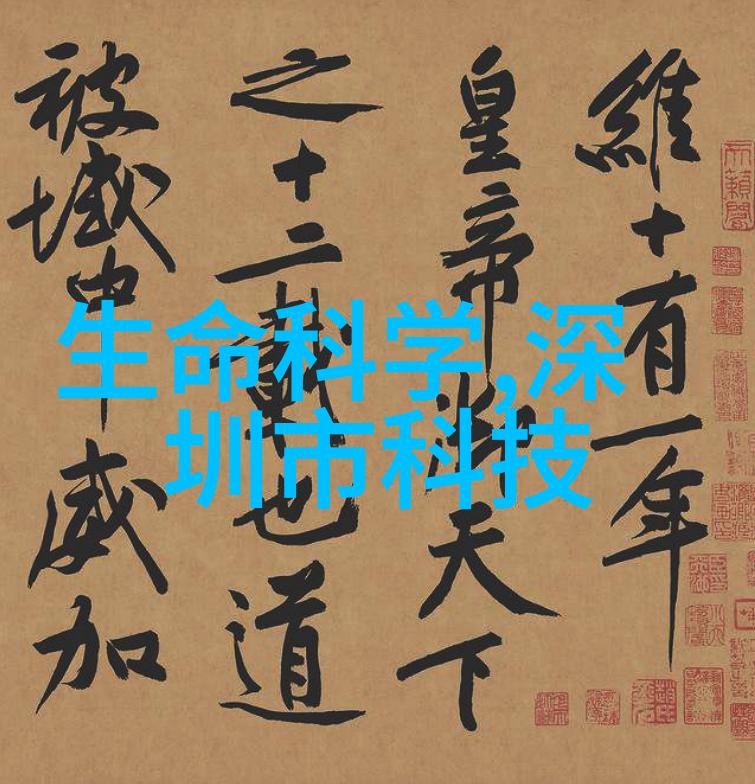 維十有一年
皇帝御天下
之十二載也道
被域中威加
生命科学,深
圳市科技